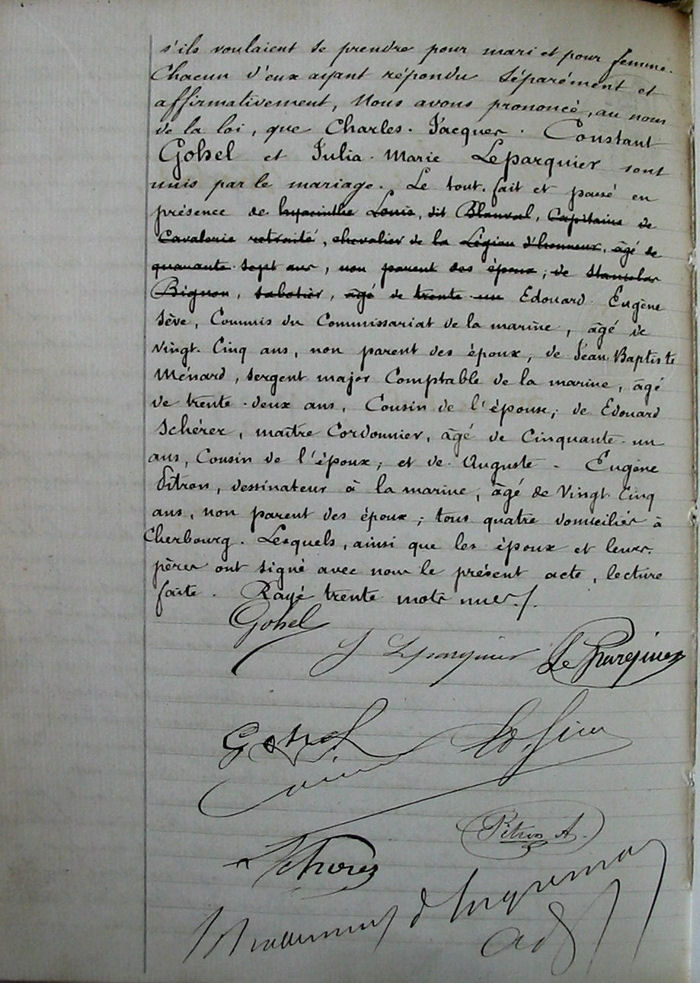 s'ils voulaient se prendre pour mari et pour femme.
Chacun d'eux ayant répondu séparément et
affirmativement, Nous avons prononcé, au nom
de la loi, que Charles-Jacques-Constant
Gohel et Julia-Marie Leparquier sont
unis par le mariage. Le tout fait et passé en
présence de hyacinthe Louis, dit Blanval, Capitaine de
Cavalerie retraité, chevalier de la Légion d'honneur, âgé de
quarante-sept ans, non parent des époux; de Stanislas
Bignon, sabotier, âgé de trente-un Edouard-Eugène
Sève, Commis du Commissariat de la marine, âgé de
vingt-cinq ans, non parent des époux, de Jean-Baptiste
Ménard, sergent major Comptable de la marine, âgé
de trente-deux ans, Cousin de l'époux; de Edouard
Schérer, maître Cordonnier, âgé de Cinquante-un
ans, Cousin de l'époux; et de Auguste-Eugène
Pitron, dessinateur à la marine, âgé de vingt-cinq
ans, non parent des époux; tous quatre domiciliés à
Cherbourg. Lesquels, ainsi que les époux et leurs
pères ont signé avec nous le présent acte, lecture
faite. Rayé trente mots nuls./.
Gohel
J Leparquier Le Parquier
Gohel Ed. Sève
Pitron A.
Scherer
adj